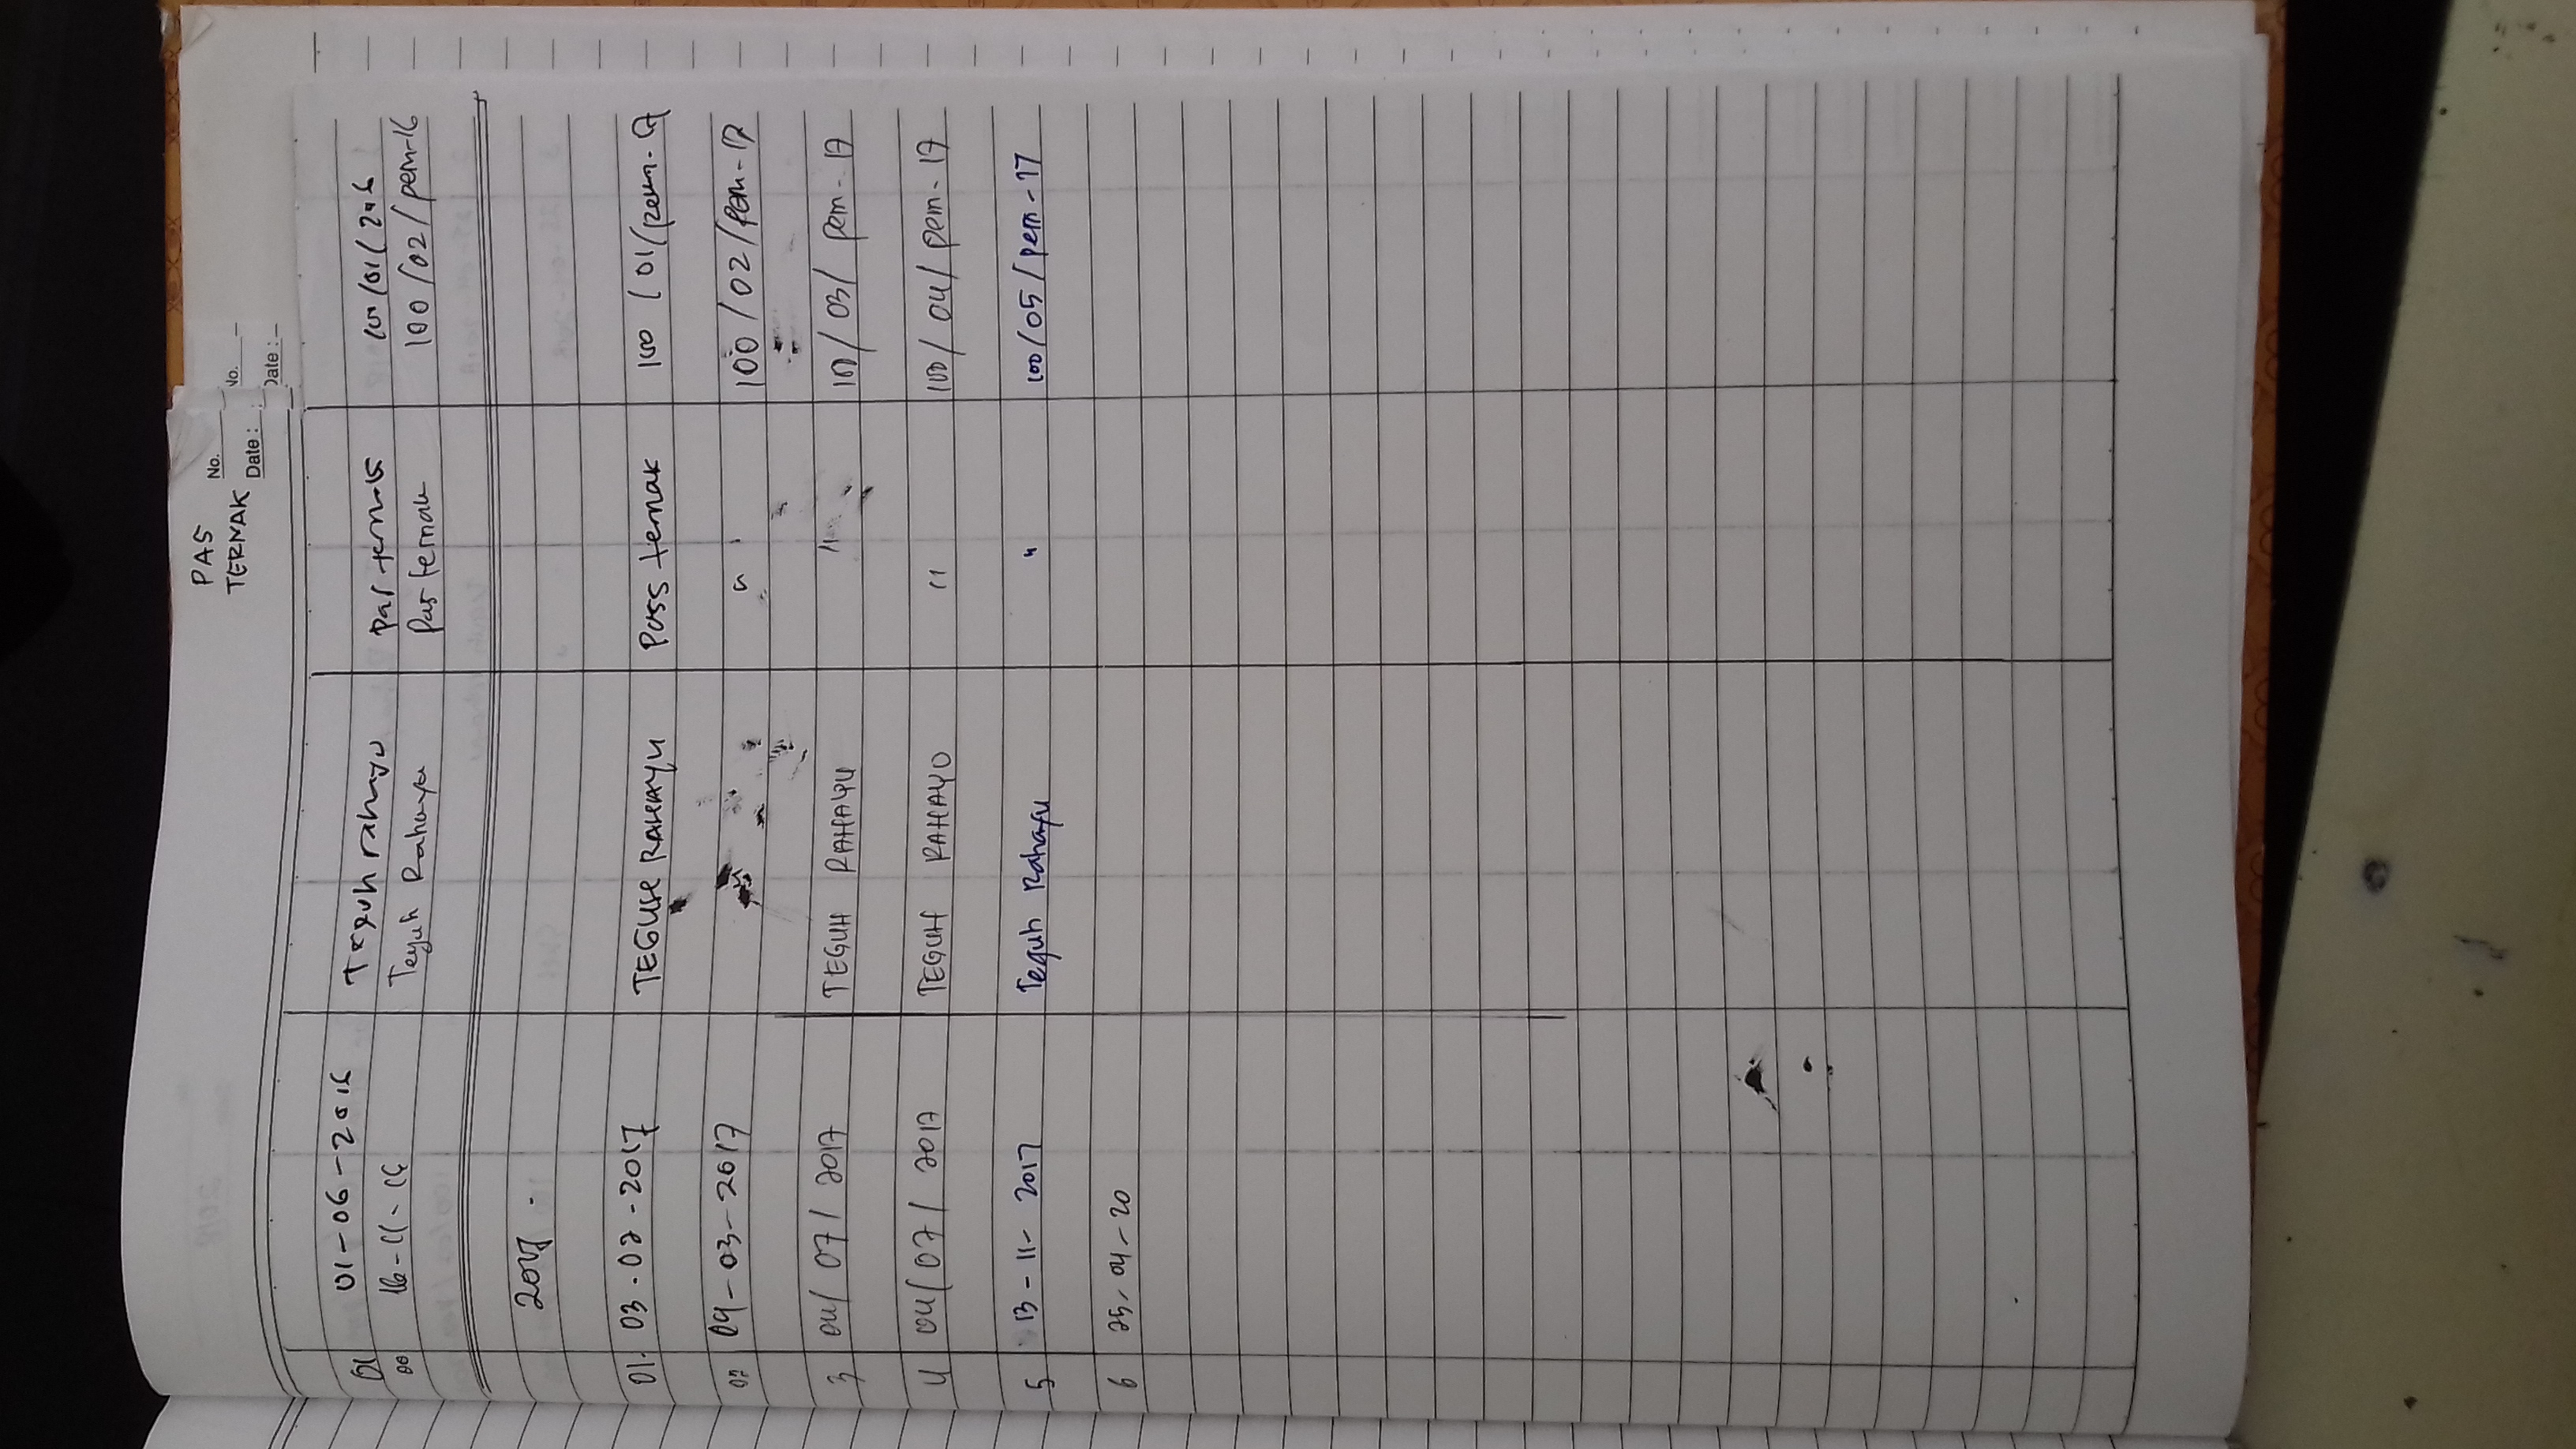 PAS
TERNAK
No.
Date :
No.
Date :
01 01-06-2016 Teguh rahayu pas ternak 100/01/2016
16-11-16 Teguh Rahayu Pas ternak 100/02/pem-16
2017 -
01. 03-02-2017 TEGUH RAHAYU Pass ternak 100/01/pem-17
02 09-03-2017 100/02/pem-17
3 04/07/2017 TEGUH RAHAYU " 100/03/pem-17
4 04/07/2017 TEGUH RAHAYU " 100/04/pem-17
5 13-11-2017 Teguh Rahayu " 100/05/pem-17
6 25-04-20